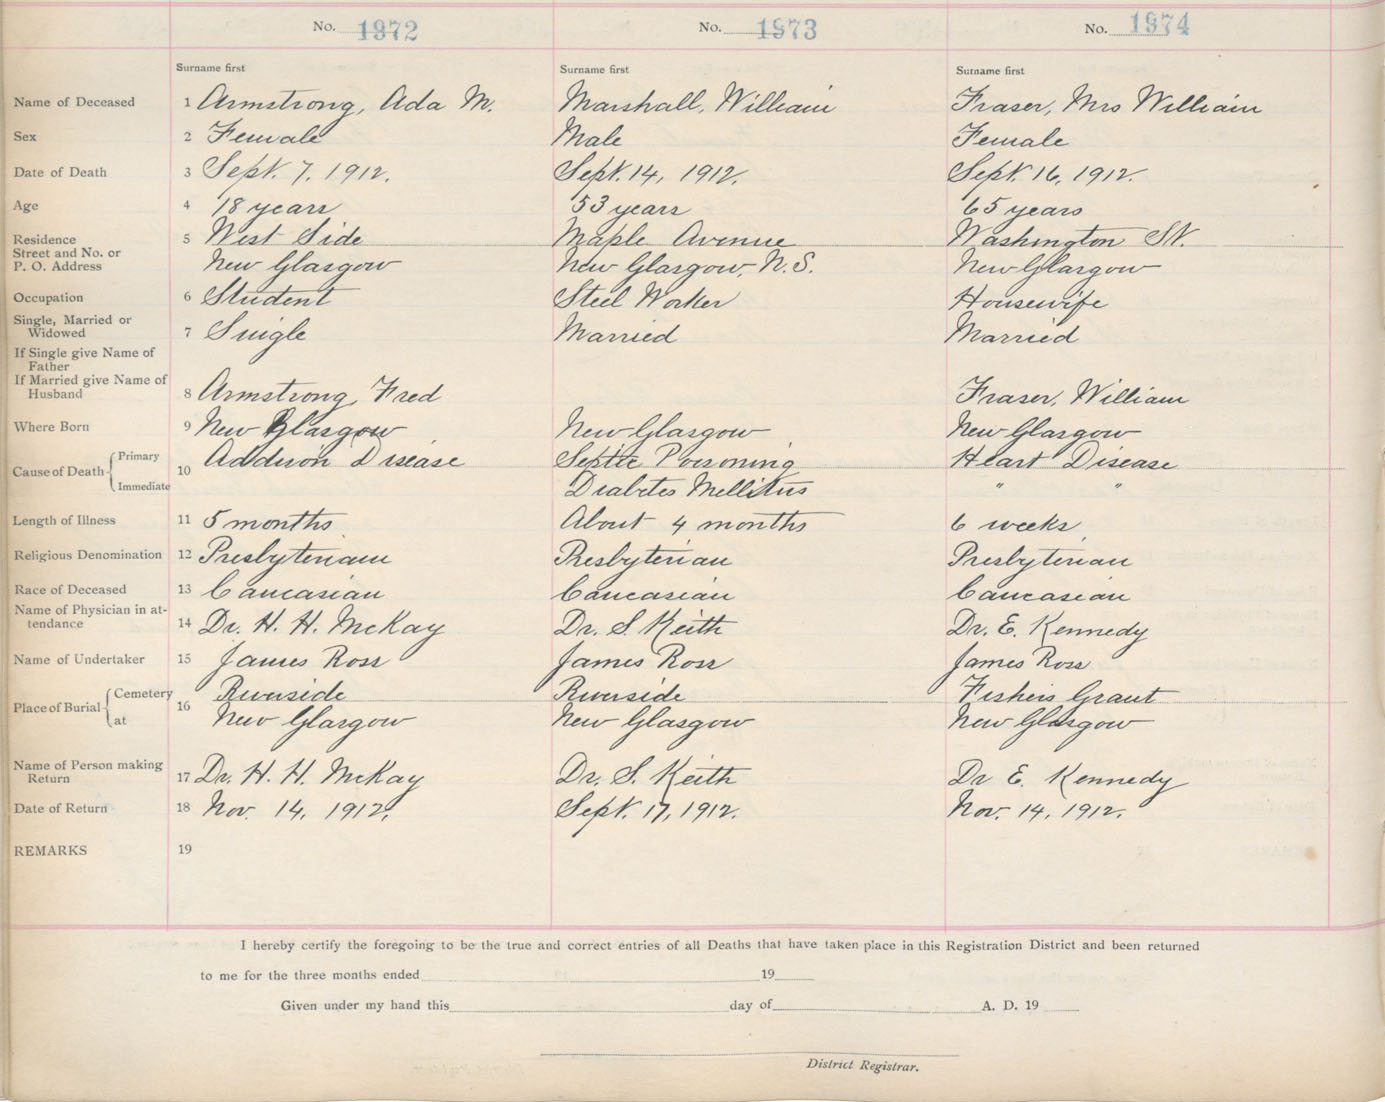 No. 1972 No. 1973 No. 1974
Surname first Surname first Surname first
Name of Deceased 1 Armstrong, Ada M. Marshall, William Fraser, Mrs William
Sex 2 Female Male Female
Date of Death 3 Sept. 7, 1912. Sept. 14, 1912. Sept. 16, 1912.
Age 4 18 years 53 years 65 years
Residence 5 West Side Maple Avenue Washington St.
Street and No. or
P. O. Address New Glasgow New Glasgow, N.S. New Glasgow
Occupation 6 Student Steel Worker Housewife
Single, Married or
Widowed 7 Single Married Married
If Single give Name of
Father
If Married give Name of
Husband 8 Armstrong, Fred Fraser, William
Where Born 9 New Glasgow New Glasgow New Glasgow
Cause of Death Primary 10 Addison Disease Septic Poisoning Heart Disease
Immediate Diabetes Mellitus " "
Length of Illness 11 5 months About 4 months 6 weeks
Religious Denomination 12 Presbyterian Presbyterian Presbyterian
Race of Deceased 13 Caucasian Caucasian Caucasian
Name of Physician in at-
tendance 14 Dr. H. H. McKay Dr. S. Keith Dr. E. Kennedy
Name of Undertaker 15 James Ross James Ross James Ross
Place of Burial Cemetery 16 Riverside Riverside Fishers Grant
at New Glasgow New Glasgow New Glasgow
Name of Person making
Return 17 Dr. H. H. McKay Dr. S. Keith Dr E. Kennedy
Date of Return 18 Nov. 14, 1912. Sept. 17, 1912. Nov. 14, 1912.
REMARKS 19
I hereby certify the foregoing to be the true and correct entries of all Deaths that have taken place in this Registration District and been returned
to me for the three months ended 19
Given under my hand this day of A. D. 19
District Registrar.